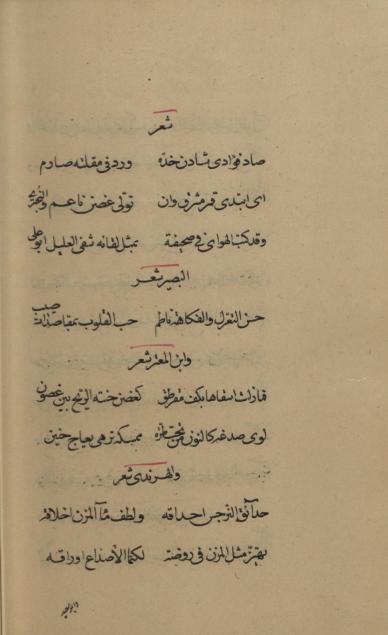 شعر
صاد فؤادى شادن خده ورد فى مقلته صارم
اى ابتدى قمر مشرق وان تولى غصن ناعم
وقد كتب الهوا فى صحيفة بمثل لقائه شفى العليل ابو على
البصير شعر
حسن التغزل والفكاهة ناظم حب القلوب بمقا
وابن المعتز شعر
فمازلت اسقاها بكف مقرطق كغصن ثنته الريح بين غصون
لوى صدغه كالنون من تحت طرة ممسكة تزهى بعاج جبين
ولهرندى شعر
حدائق النرجس احداقه ولطف ماء المزن اخلاقه
يهتز مثل المزن فى روضة لكنما الأصداغ اوراقه